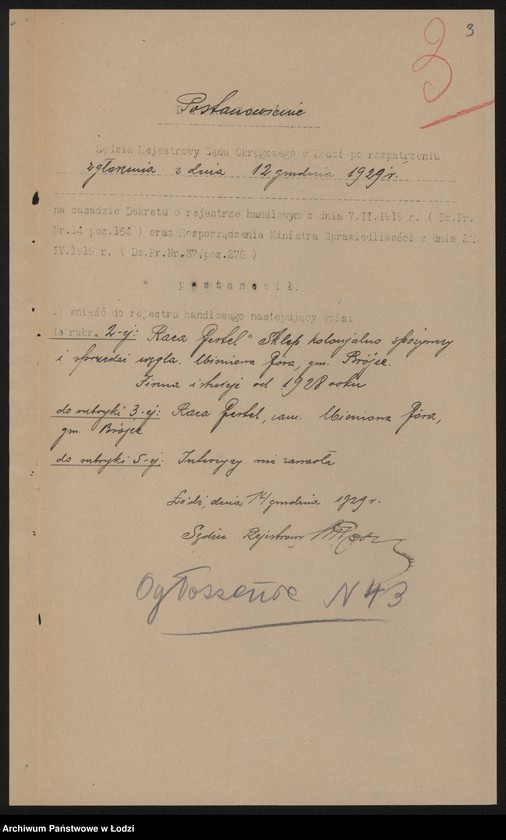 3
3
Postanowienie
Sędzia Rejestrowy Sądu Okręgowego w Łodzi po rozpatrzeniu
zgłoszenia z dnia 12 grudnia 1929 r.
na zasadzie Dekretu o rejestrze handlowym z dnia 7.II.1919 r. ( Dz.Pr.
Nr.14 poz.164 ) oraz Rozporządzenia Ministra Sprawiedliwości z dnia
IV.1919 r. ( Dz.Pr.Nr.37.poz.278 )
p o s t a n o w i ł:
1) wnieść do rejestru handlowego następujący wpis:
do rubr. 2-ej: "Sklep kolonjalno spożywczy
i sprzedaż węgla. Góra, gm. Brójce.
Firma istnieje od 1928 roku
do rubryki 3-ej: zam. Góra,
gm. Brójce
do rubryki 5-ej: Intercyzy nie zawarła
Łódź, dnia 14 grudnia 1929 r.
Sędzia Rejestrowy
Ogłoszenie N 43
Archiwum Państwowe w Łodzi